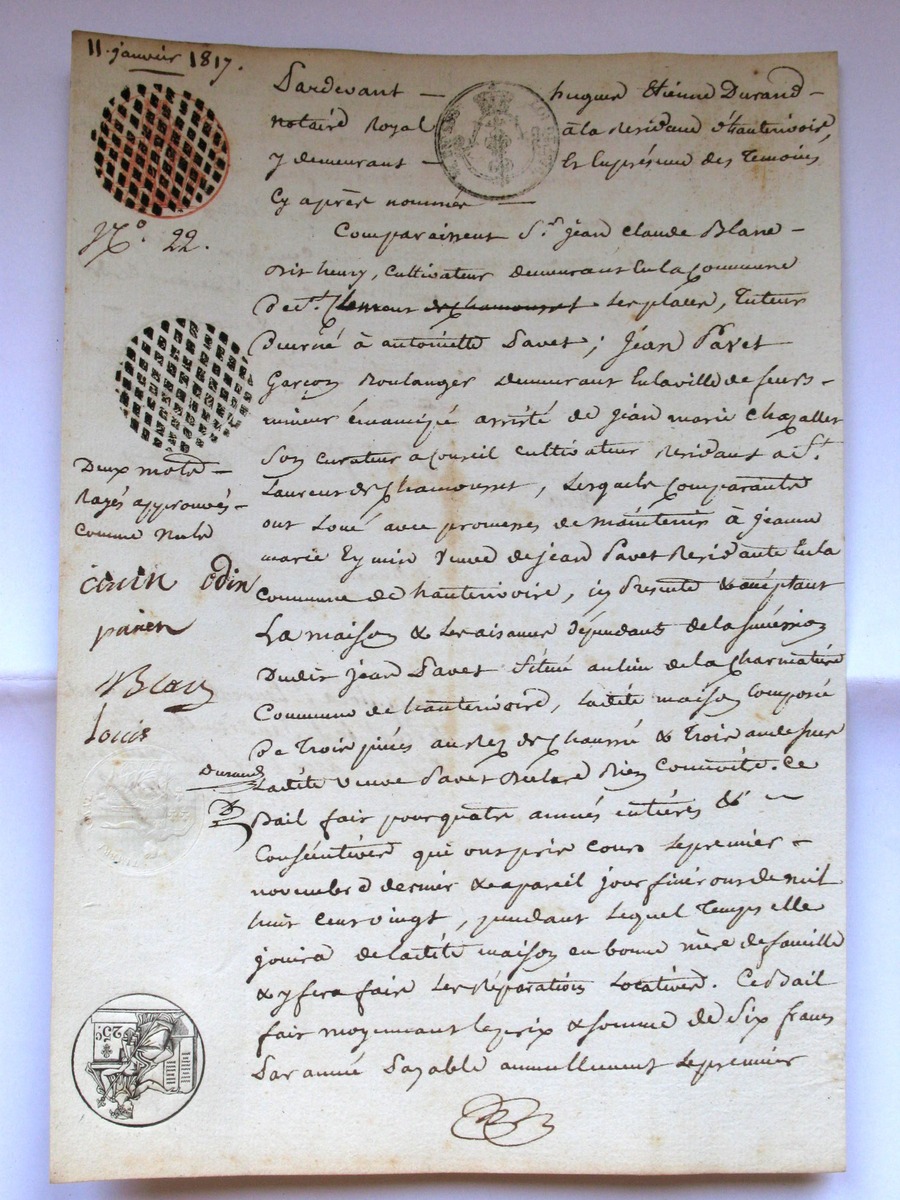 11. janvier 1817.
Pardevant - hugues Etienne Durand -
notaire Royal à la Residence d'hauterivoire,
y demeurant - Et En présence des Temoins
Cy après nommés -
N.º 22.
Comparaissent S.r jean claude Blanc -
dit henry, cultivateur demeurant En la Commune
De s.t Clément Les places, Tuteur
Décerné à antoinette Pavet ; Jean Pavet
Garçon Boulanger demeurant En la ville de feurs -
mineur émancipé assisté de jean marie chazallet
Son curateur a Conseil cultivateur Residant a S.t
Laurent de Chamousset, Lesquels Comparants
ont Loué avec promesses de maintenir à jeanne
marie Eymin Veuve de jean Pavet Residante En la
Commune de hauterivoire, icy Presente & acceptant
La maison & Les aisances dépendants de la succession
Dudit jean Pavet Situé au lieu de la Charmatière
Commune de hauterivoire, Ladite maison Composée
De Trois pièces au Rez de Chaussé & Trois au dessus
Ladite Veuve Pavet Déclare Bien Connoitre. Ce
Bail fait pour quatre années entières &
Consécutives qui ont pris Cours Le premier -
novembre dernier & a pareil jour finiront dix huit
huit Cent vingt, pendant Lequel Temps elle
jouira de Ladite maison en bonne mère de famille
& y fera faire Les Réparations Locatives. Ce Bail
fait moyennant Le prix & somme de Six francs
Par année Payable annuellement Le premier
Deux mots -
Rayés approuvés -
Comme Nuls
Odin
Blanc
Louis
Durand
25c.